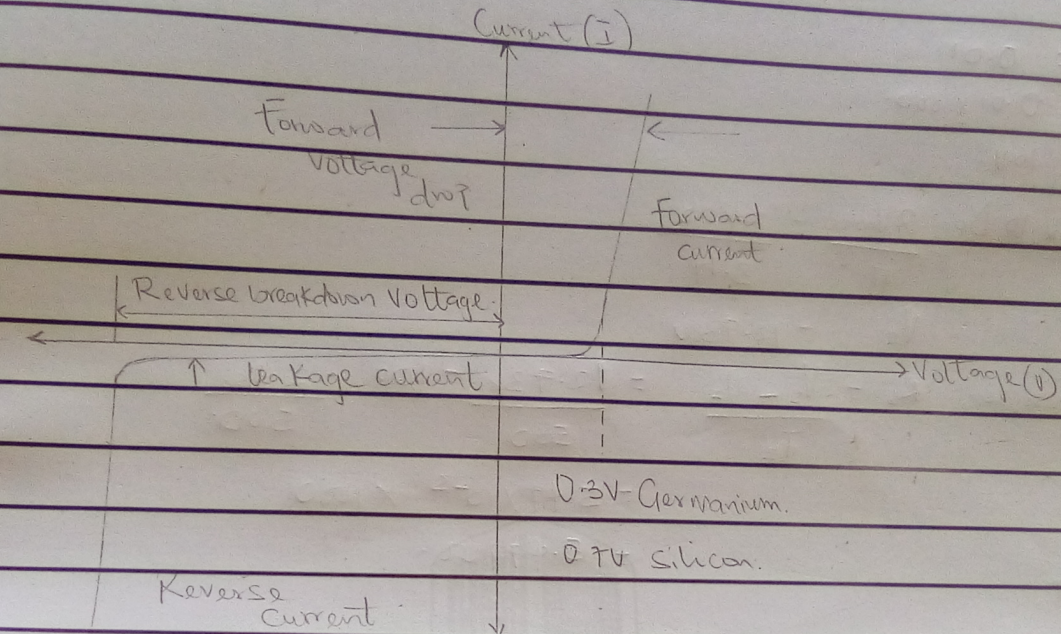 Current (I)
Forward
Voltage
drop
Forward
current
Reverse breakdown Voltage
Leakage current
Voltage (V)
0.3V-Germanium.
0.7V silicon.
Reverse
current